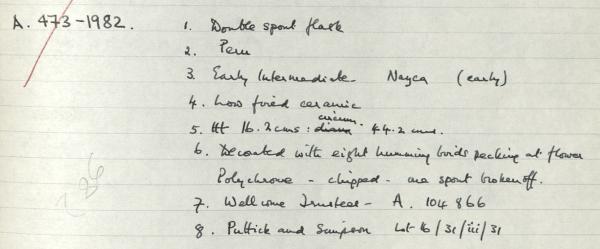 A. 473-1982. 1. Double spout flask
2. Peru
3. Early Intermediate - Nazca (early)
4. Low fired ceramic
5. Ht 16.2 cms : circum. 44.2 cms.
6. Decorated with eight humming birds pecking at flower
Polychrome - chipped - one spout broken off.
7. Wellcome Trustees - A. 104866
8. Puttick and Simpson Lot 16/31/iii/31